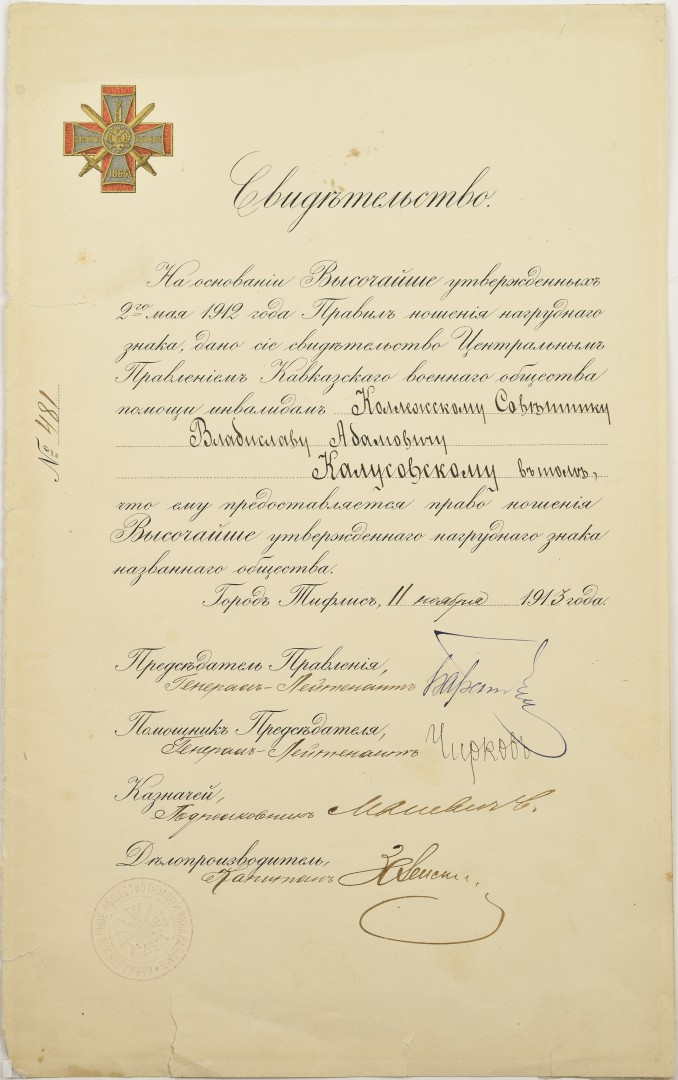 1864
Свидѣтельство.
На основаніи Высочайше утвержденныхъ
2го мая 1912 года Правилъ ношенія нагруднаго
знака, дано сіе свидѣтельство Центральнымъ
Правленіемъ Кавказскаго военнаго общества
помощи инвалидамъ Коллежскому Совѣтнику
Владиславу Адамовичу
Калусовскому въ томъ,
что ему предоставляется право ношенія
Высочайше утвержденнаго нагруднаго знака
названнаго общества.
Городъ Тифлисъ, 11 ноября 1913 года.
№ 481
Предсѣдатель Правленія,
Генералъ-Лейтенантъ
Помощникъ Предсѣдателя,
Генералъ-Лейтенантъ Чирковъ
Казначей,
Подполковникъ Мацевичъ.
Дѣлопроизводитель,
Капитанъ